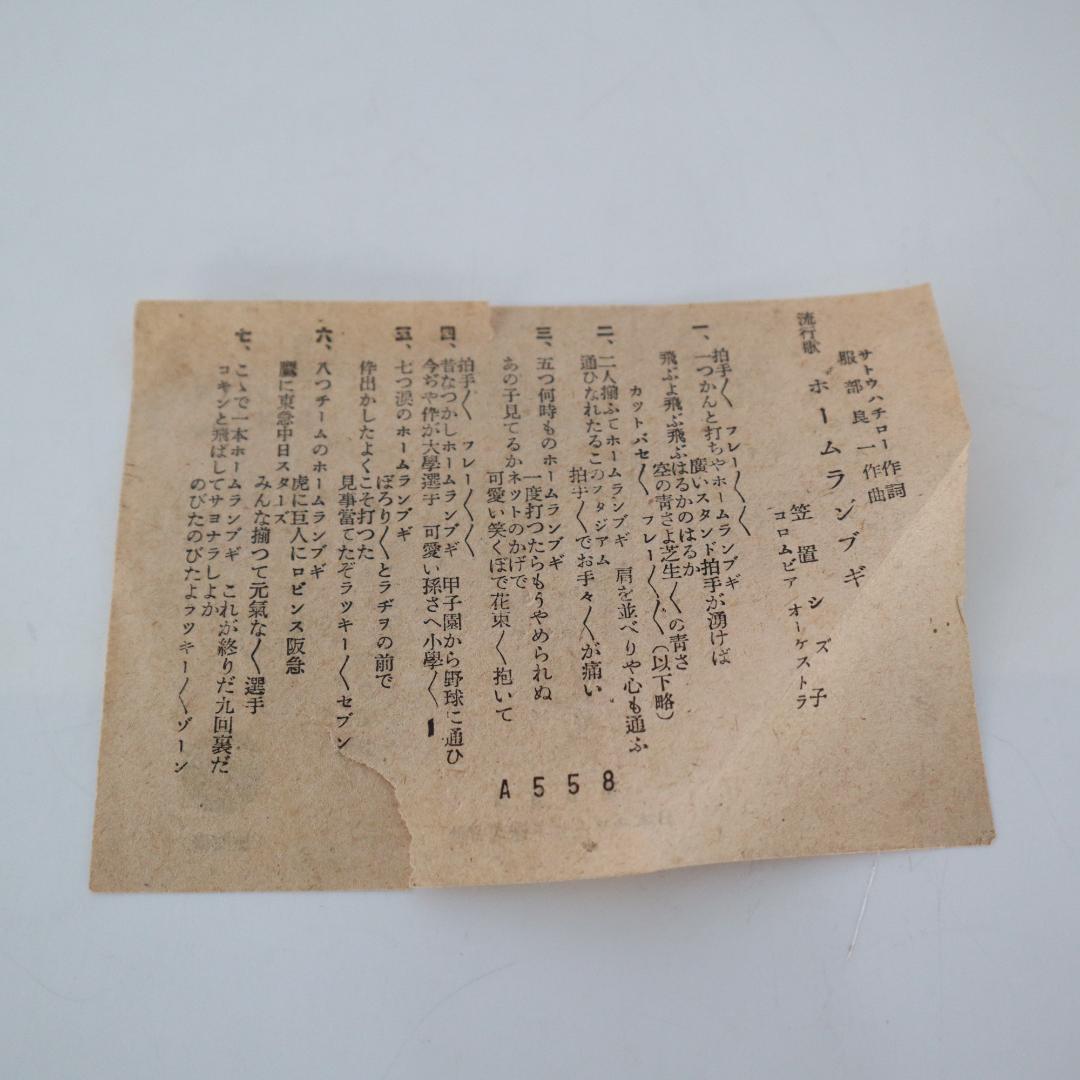 流行歌
ホームランブギ
サトウハチロー作詞
服部良一作曲
笠置シズ子
コロムビアオーケストラ
一、拍手〱　フレー〱〱
一つかんと打ちやホームランブギ
廣いスタンド拍手が湧けば
飛ぶよ飛ぶ飛ぶはるかのはるか
空の青さよ芝生〱の青さ
カットバセ〱　フレー〱〱（以下略）
二、二人揃ふてホームランブギ　肩を並べりや心も通ふ
通ひなれたるこのスタジアム
拍手〱でお手々〱が痛い
三、五つ何時ものホームランブギ
一度打つたらもうやめられぬ
あの子見てるかネットのかげで
可愛い笑くぼで花束〱抱いて
四、拍手〱　フレー〱〱
昔なつかしホームランブギ　甲子園から野球に通ひ
今ぢや伜が大學選手　可愛い孫さへ小學〱
五、七つ涙のホームランブギ
ぽろり〱とラヂヲの前で
伜出かしたよくこそ打つた
見事當てたぞラッキー〱セブン
六、八つチームのホームランブギ
虎に巨人にロビンス阪急
鷹に東急中日スターズ
みんな揃つて元氣な〱選手
七、こゝで一本ホームランブギ　これが終りだ九回裏だ
コキンと飛ばしてサヨナラしよか
のびたのびたよラッキー〱ゾーン
A558